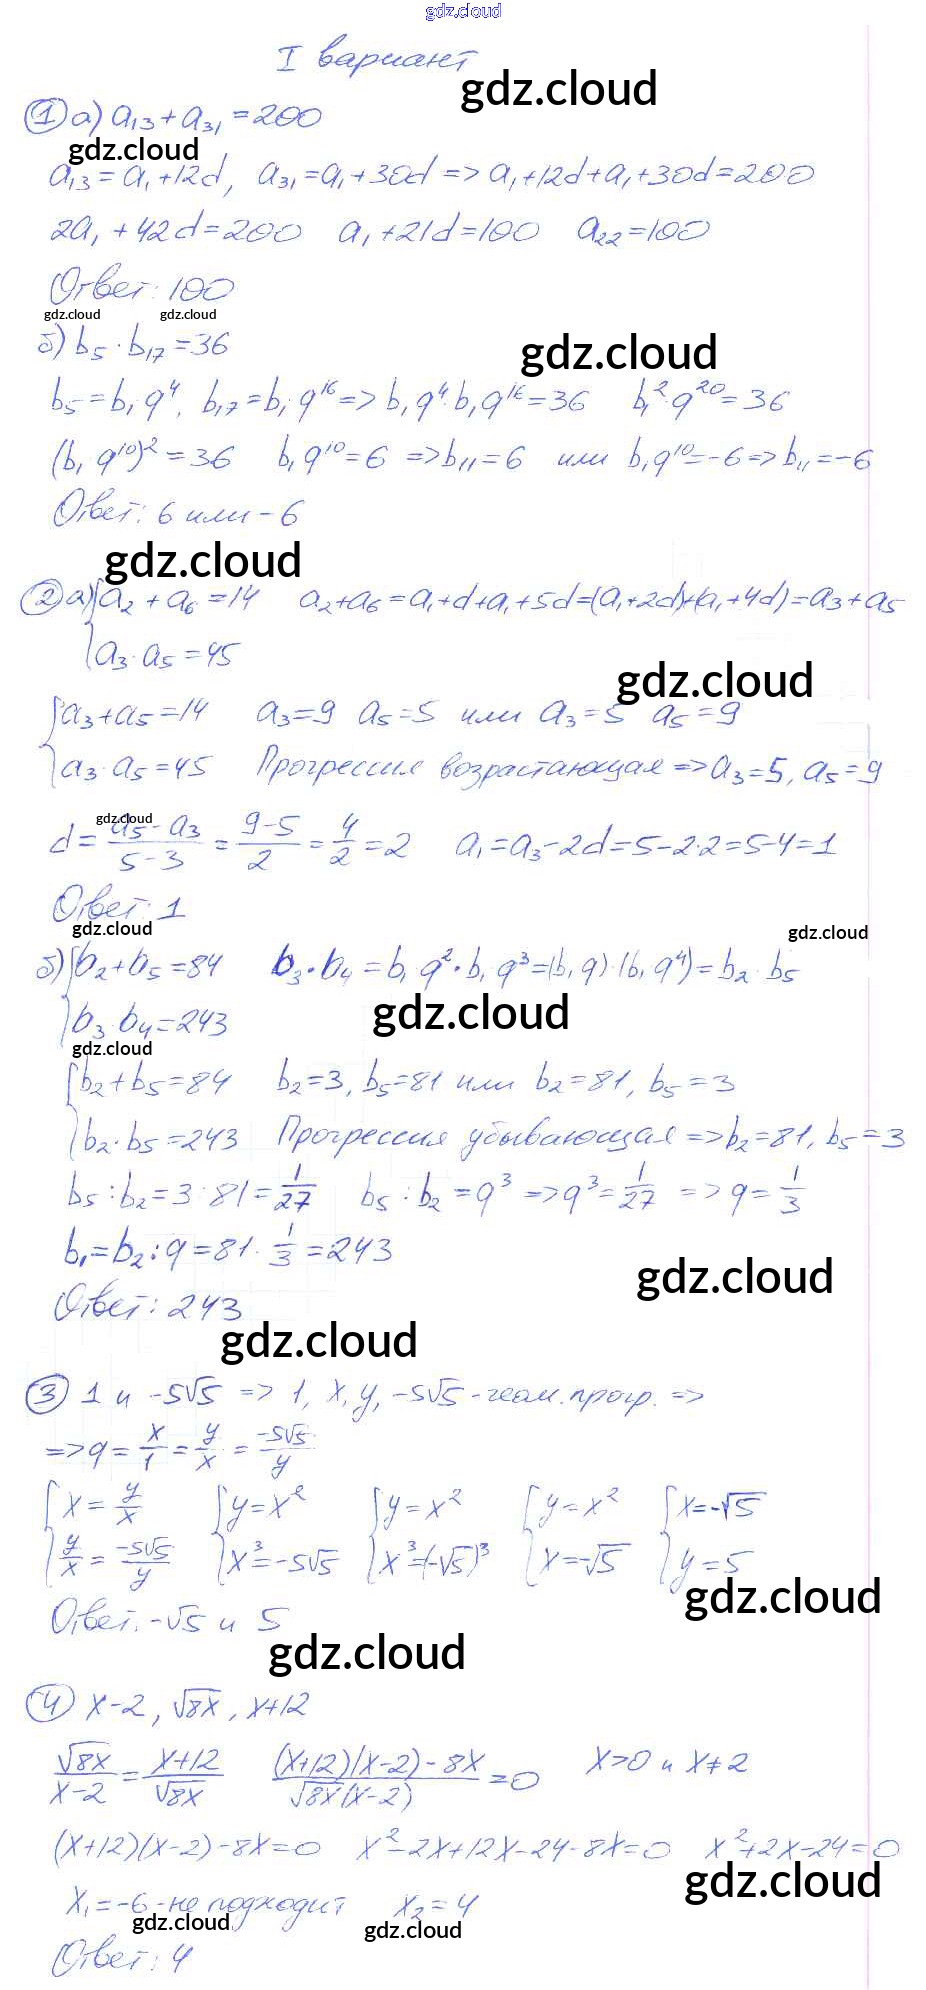 gdz.cloud
I вариант
gdz.cloud
① а) a₁₃ + a₃₁ = 200
gdz.cloud
a₁₃ = a₁ + 12d, a₃₁ = a₁ + 30d => a₁ + 12d + a₁ + 30d = 200
2a₁ + 42d = 200 a₁ + 21d = 100 a₂₂ = 100
Ответ: 100
gdz.cloud gdz.cloud
б) b₅ · b₁₇ = 36
gdz.cloud
b₅ = b₁q⁴, b₁₇ = b₁q¹⁶ => b₁q⁴·b₁q¹⁶ = 36 b₁²·q²⁰ = 36
(b₁q¹⁰)² = 36 b₁q¹⁰ = 6 => b₁₁ = 6 или b₁q¹⁰ = -6 => b₁₁ = -6
Ответ: 6 или -6
gdz.cloud
② а) { a₂ + a₆ = 14 a₂ + a₆ = a₁ + d + a₁ + 5d = (a₁ + 2d) + (a₁ + 4d) = a₃ + a₅
a₃ · a₅ = 45
gdz.cloud
{ a₃ + a₅ = 14 a₃ = 9 a₅ = 5 или a₃ = 5 a₅ = 9
a₃ · a₅ = 45 Прогрессия возрастающая => a₃ = 5, a₅ = 9
gdz.cloud
d = (a₅ - a₃)/(5 - 3) = (9 - 5)/2 = 4/2 = 2 a₁ = a₃ - 2d = 5 - 2·2 = 5 - 4 = 1
Ответ: 1
gdz.cloud gdz.cloud
б) { b₂ + b₅ = 84 b₃ · b₄ = b₁q² · b₁q³ = (b₁q)·(b₁q⁴) = b₂ · b₅
gdz.cloud
b₃ · b₄ = 243
gdz.cloud
{ b₂ + b₅ = 84 b₂ = 3, b₅ = 81 или b₂ = 81, b₅ = 3
b₂ · b₅ = 243 Прогрессия убывающая => b₂ = 81, b₅ = 3
b₅ : b₂ = 3 : 81 = 1/27 b₅ : b₂ = q³ => q³ = 1/27 => q = 1/3
b₁ = b₂ : q = 81 · 1/3 = 243
gdz.cloud
Ответ: 243
gdz.cloud
③ 1 и -5√5 => 1, x, y, -5√5 - геом. прогр. =>
=> q = x/1 = y/x = -5√5/y
{ x = y/x { y = x² { y = x² { y = x² { x = -√5
y/x = -5√5/y x³ = -5√5 x³ = (-√5)³ x = -√5 y = 5
gdz.cloud
Ответ: -√5 и 5
gdz.cloud
④ x - 2, √8x, x + 12
√8x/(x - 2) = (x + 12)/√8x ((x + 12)(x - 2) - 8x)/(√8x(x - 2)) = 0 x > 0 и x ≠ 2
(x + 12)(x - 2) - 8x = 0 x² - 2x + 12x - 24 - 8x = 0 x² + 2x - 24 = 0
gdz.cloud
x₁ = -6 - не подходит x₂ = 4
gdz.cloud gdz.cloud
Ответ: 4